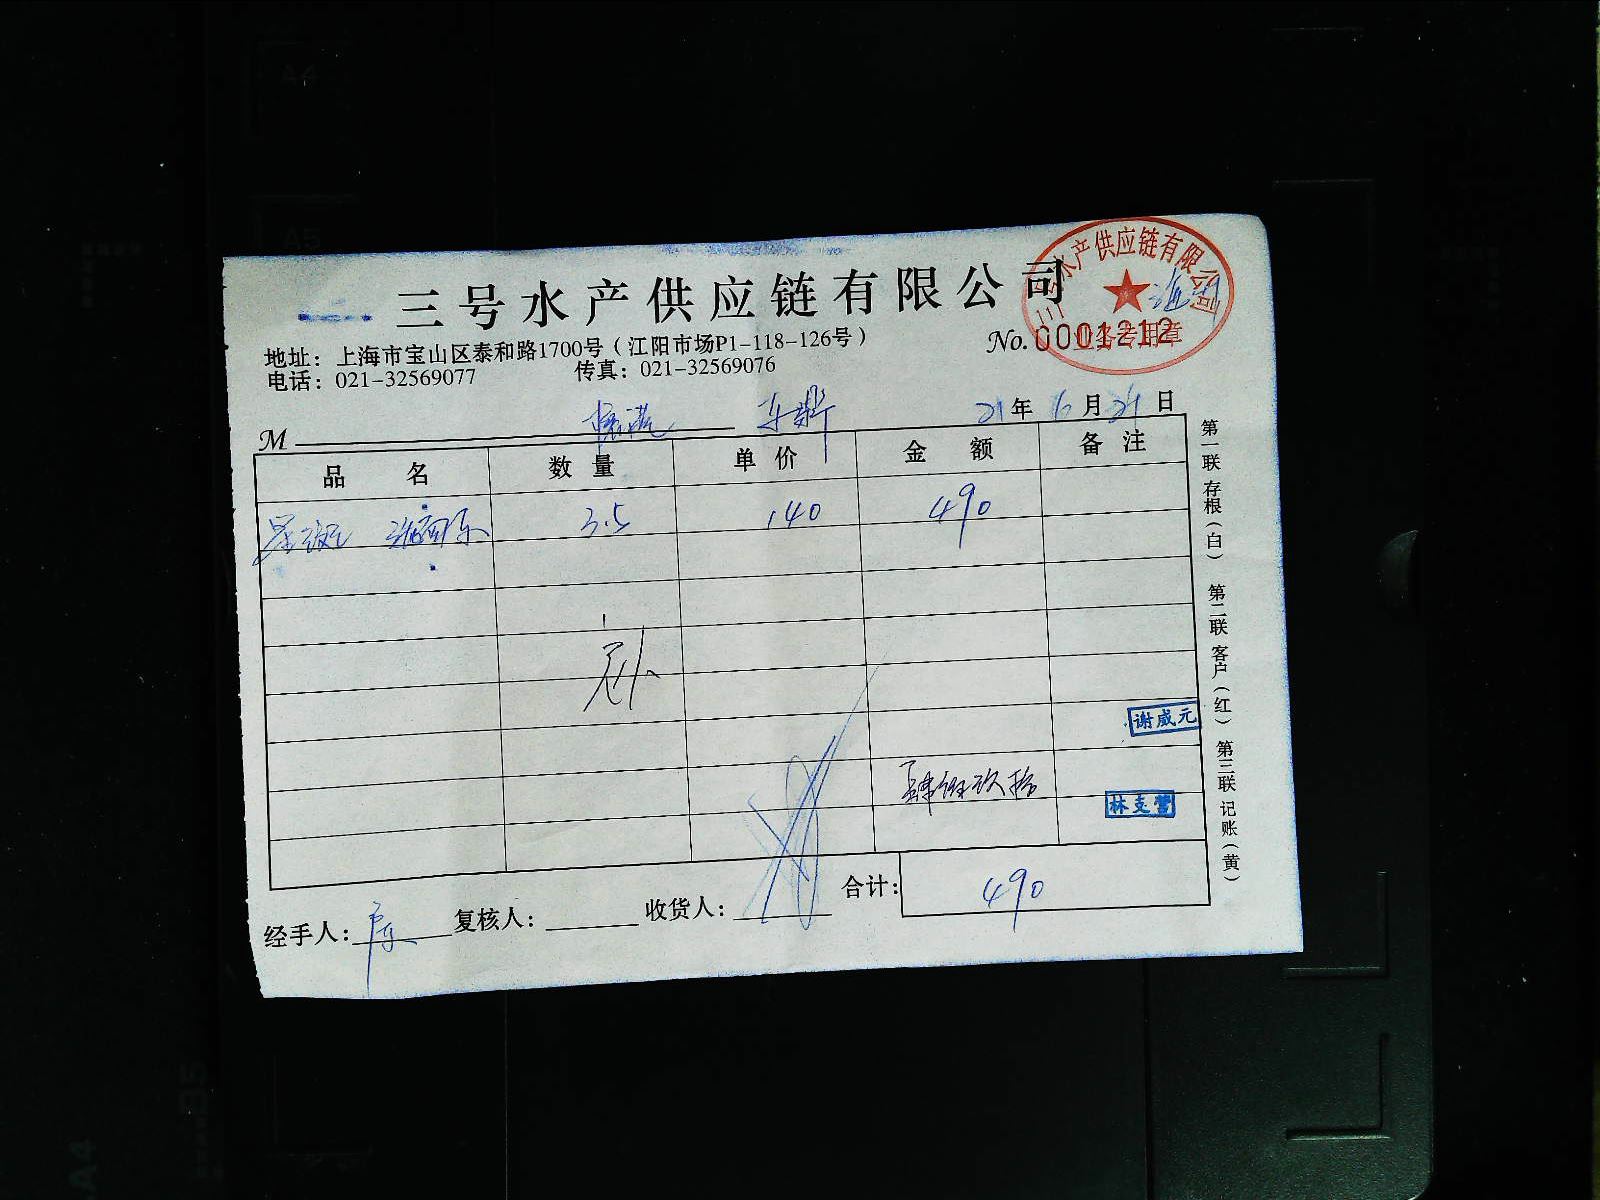 三号水产供应链有限公司
三号水产供应链有限公司
业务专用章
地址：上海市宝山区泰和路1700号（江阳市场P1-118-126号）
No.0001212
电话：021-32569077 传真：021-32569076
21年 6月 24日
M
品名 数量 单价 金额 备注
3.5 140 490
谢威元
肆佰玖拾
林支营
合计: 490
经手人: 复核人: 收货人:
第一联 存根（白） 第二联 客户（红） 第三联 记账（黄）
A4
A5
B5
A4